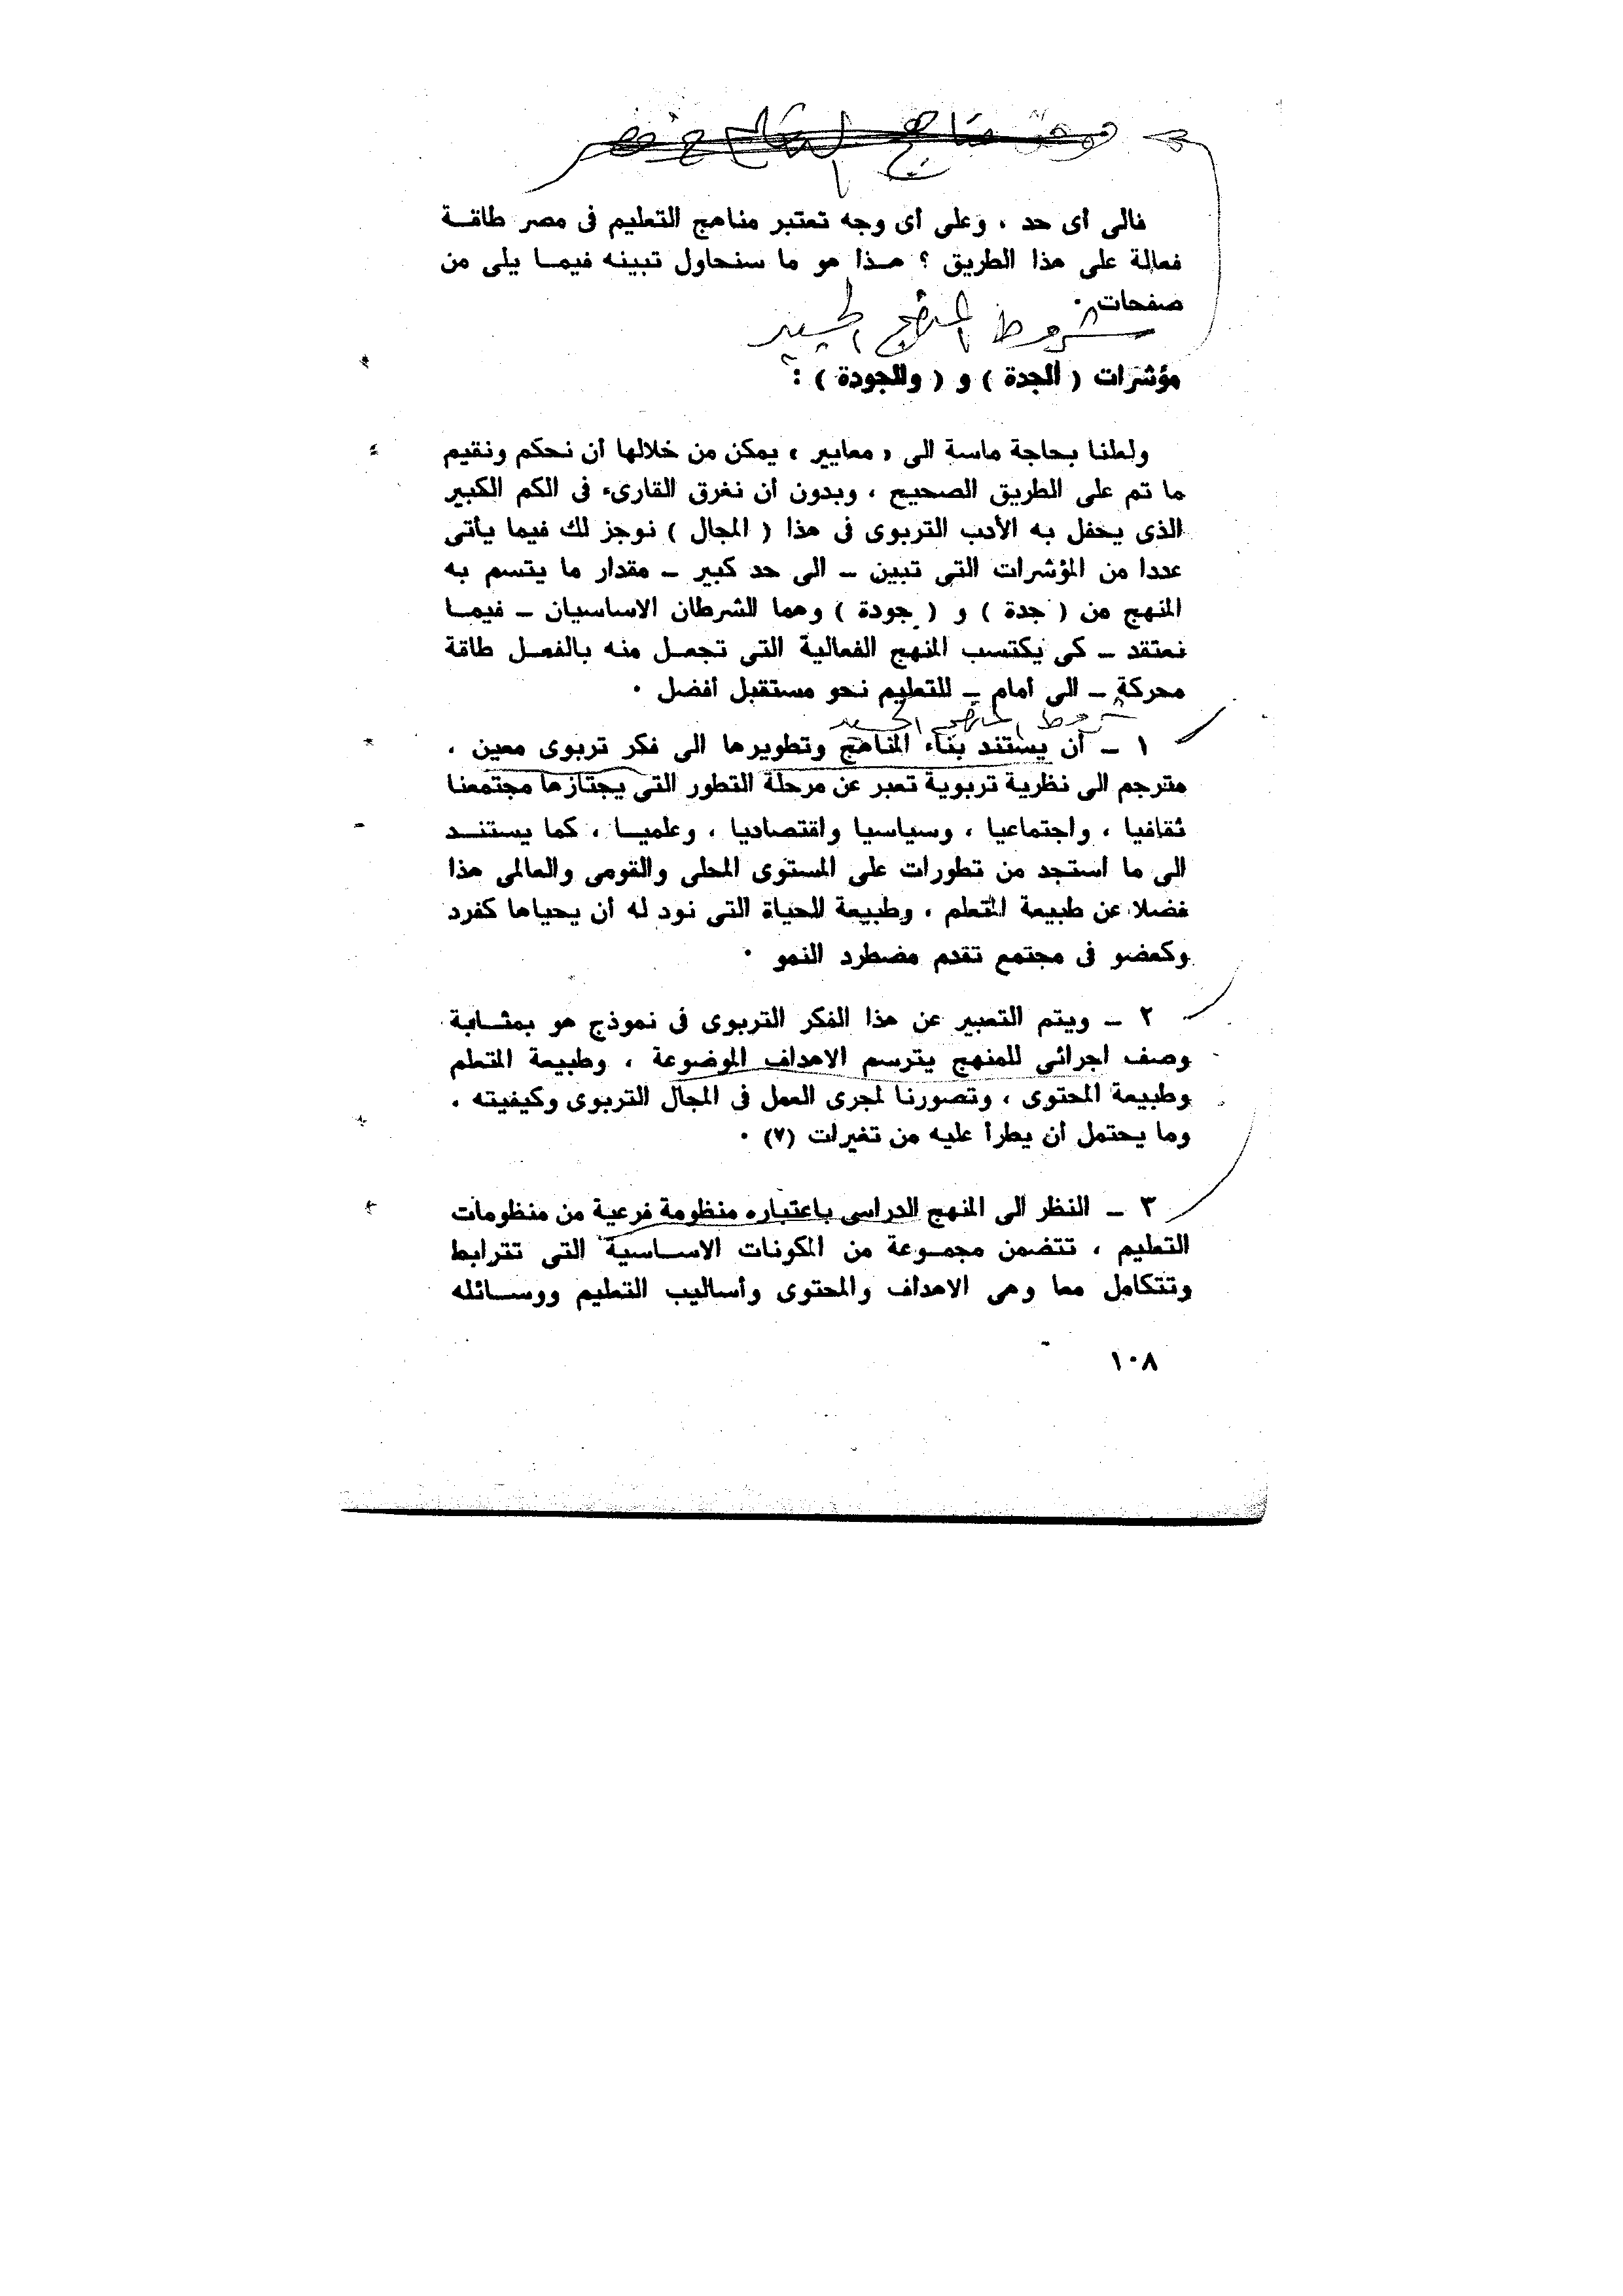 مناهج التعليم في مصر
فالى أى حد ، وعلى أى وجه تعتبر مناهج التعليم فى مصر طاقــة
فعالة على هذا الطريق ؟ هـذا هو ما سنحاول تبينه فيمـا يلى من
صفحات ٠
شروط المنهج الجيد
مؤشرات ( الجدة ) و ( والجودة ) :
ولعلنا بحاجة ماسة الى « معايير » يمكن من خلالها أن نحكم ونقيم
ما تم على الطريق الصحيح ، وبدون أن نغرق القارىء فى الكم الكبير
الذى يحفل به الأدب التربوى فى هذا ( المجال ) نوجز لك فيما يأتى
عددا من المؤشرات التى تبين ــ الى حد كبير ــ مقدار ما يتسم به
المنهج من ( جدة ) و ( جودة ) وهما الشرطان الاساسيان ــ فيمـا
نعتقد ــ كى يكتسب المنهج الفعالية التى تجعـل منه بالفعـل طاقة
محركة ــ الى أمام ــ للتعليم نحو مستقبل أفضل ٠
شروط المنهج الجيد
١ ــ أن يستند بناء المناهج وتطويرها الى فكر تربوى معين ،
مترجم الى نظرية تربوية تعبر عن مرحلة التطور التى يجتازها مجتمعنا
ثقافيا ، واجتماعيا ، وسياسيا واقتصاديا ، وعلميـا ، كما يستنـد
الى ما استجد من تطورات على المستوى المحلى والقومى والعالمى هذا
فضلا عن طبيعة المتعلم ، وطبيعة الحياة التى نود له أن يحياها كفرد
وكعضو فى مجتمع تقدم مضطرد النمو ٠
٢ ــ ويتم التعبير عن هذا الفكر التربوى فى نموذج هو بمثـابة
وصف اجرائى للمنهج يترسم الاهداف الموضوعة ، وطبيعة المتعلم
وطبيعة المحتوى ، وتصورنا لمجرى العمل فى المجال التربوى وكيفيته .
وما يحتمل أن يطرأ عليه من تغيرات (٧) ٠
٣ ــ النظر الى المنهج الدراسى باعتباره منظومة فرعية من منظومات
التعليم ، تتضمن مجمـوعة من المكونات الاسـاسية التى تترابط
وتتكامل معا وهى الاهداف والمحتوى وأساليب التعليم ووسـائله
١٠٨